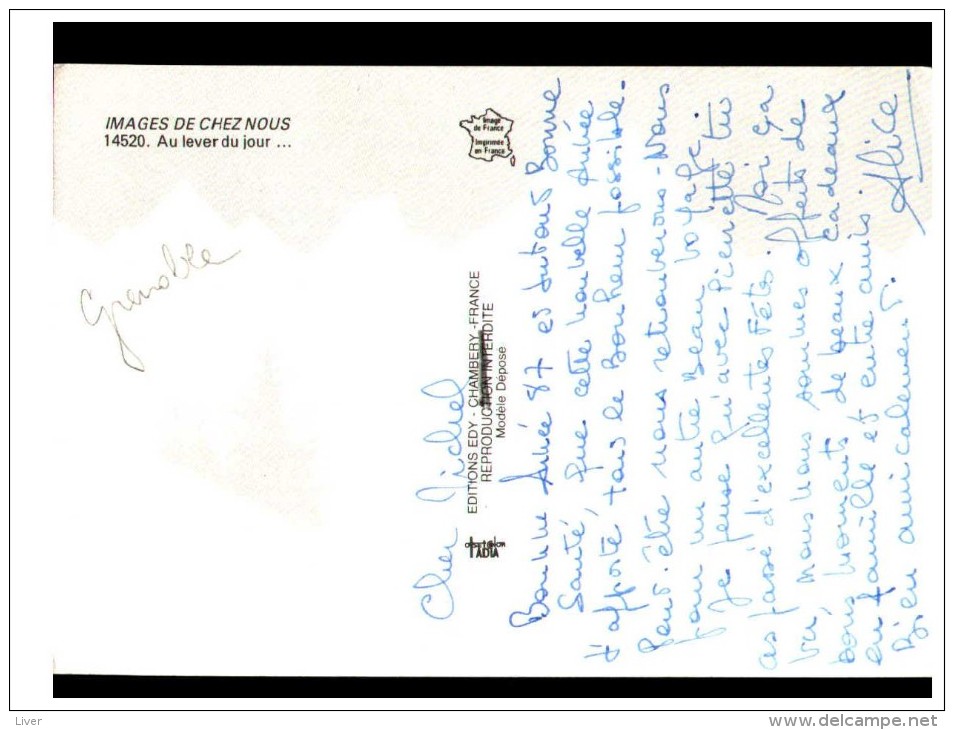 IMAGES DE CHEZ NOUS
14520. Au lever du jour ...
Image
de France
Imprimée
en France
Grenoble
EDITIONS EDY - CHAMBERY - FRANCE
REPRODUCTION INTERDITE
Modèle Déposé
TADIA
Cher Michel
Bonne Année 87 et surtout Bonne
Santé, que cette nouvelle Année
t'apporte tous le Bonheur possible.
Peut-être nous retrouverons-Nous
pour un autre Beau voyage.
Je pense qu'avec Pierrette tu
as passé d'excellentes Fêtes. Ici ça
va, nous nous sommes offerts de
bons moments de beaux cadeaux
en famille et entre amis.
Bien amicalement.
Alice
Liver
www.delcampe.net